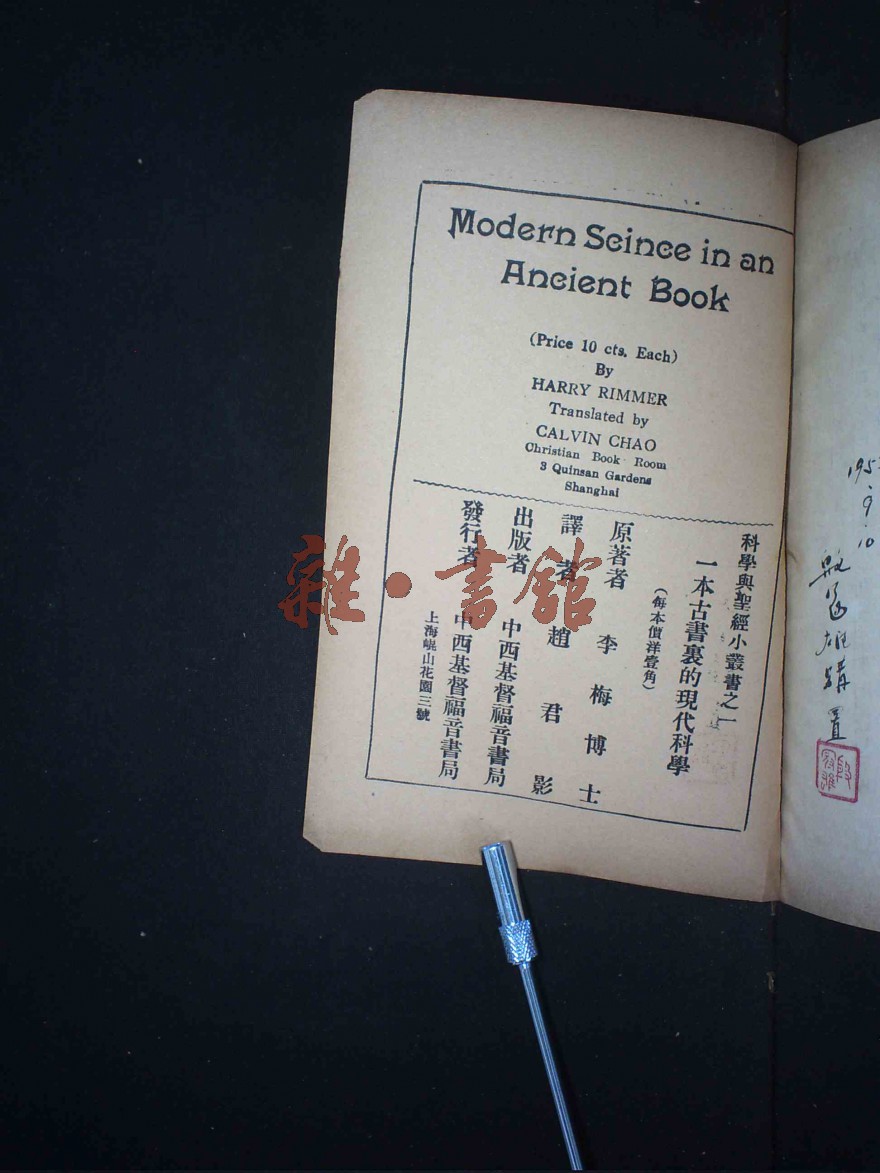 Modern Scince in an
Ancient Book
(Price 10 cts. Each)
By
HARRY RIMMER
Translated by
CALVIN CHAO
Christian Book Room
3 Quinsan Gardens
Shanghai
科學與聖經小叢書之一
一本古書裏的現代科學
(每本價洋壹角)
原著者 李梅博士
譯者 趙君影
出版者 中西基督福音書局
發行者 中西基督福音書局
上海崐山花園三號
雜·書館
195
.9.10
購置